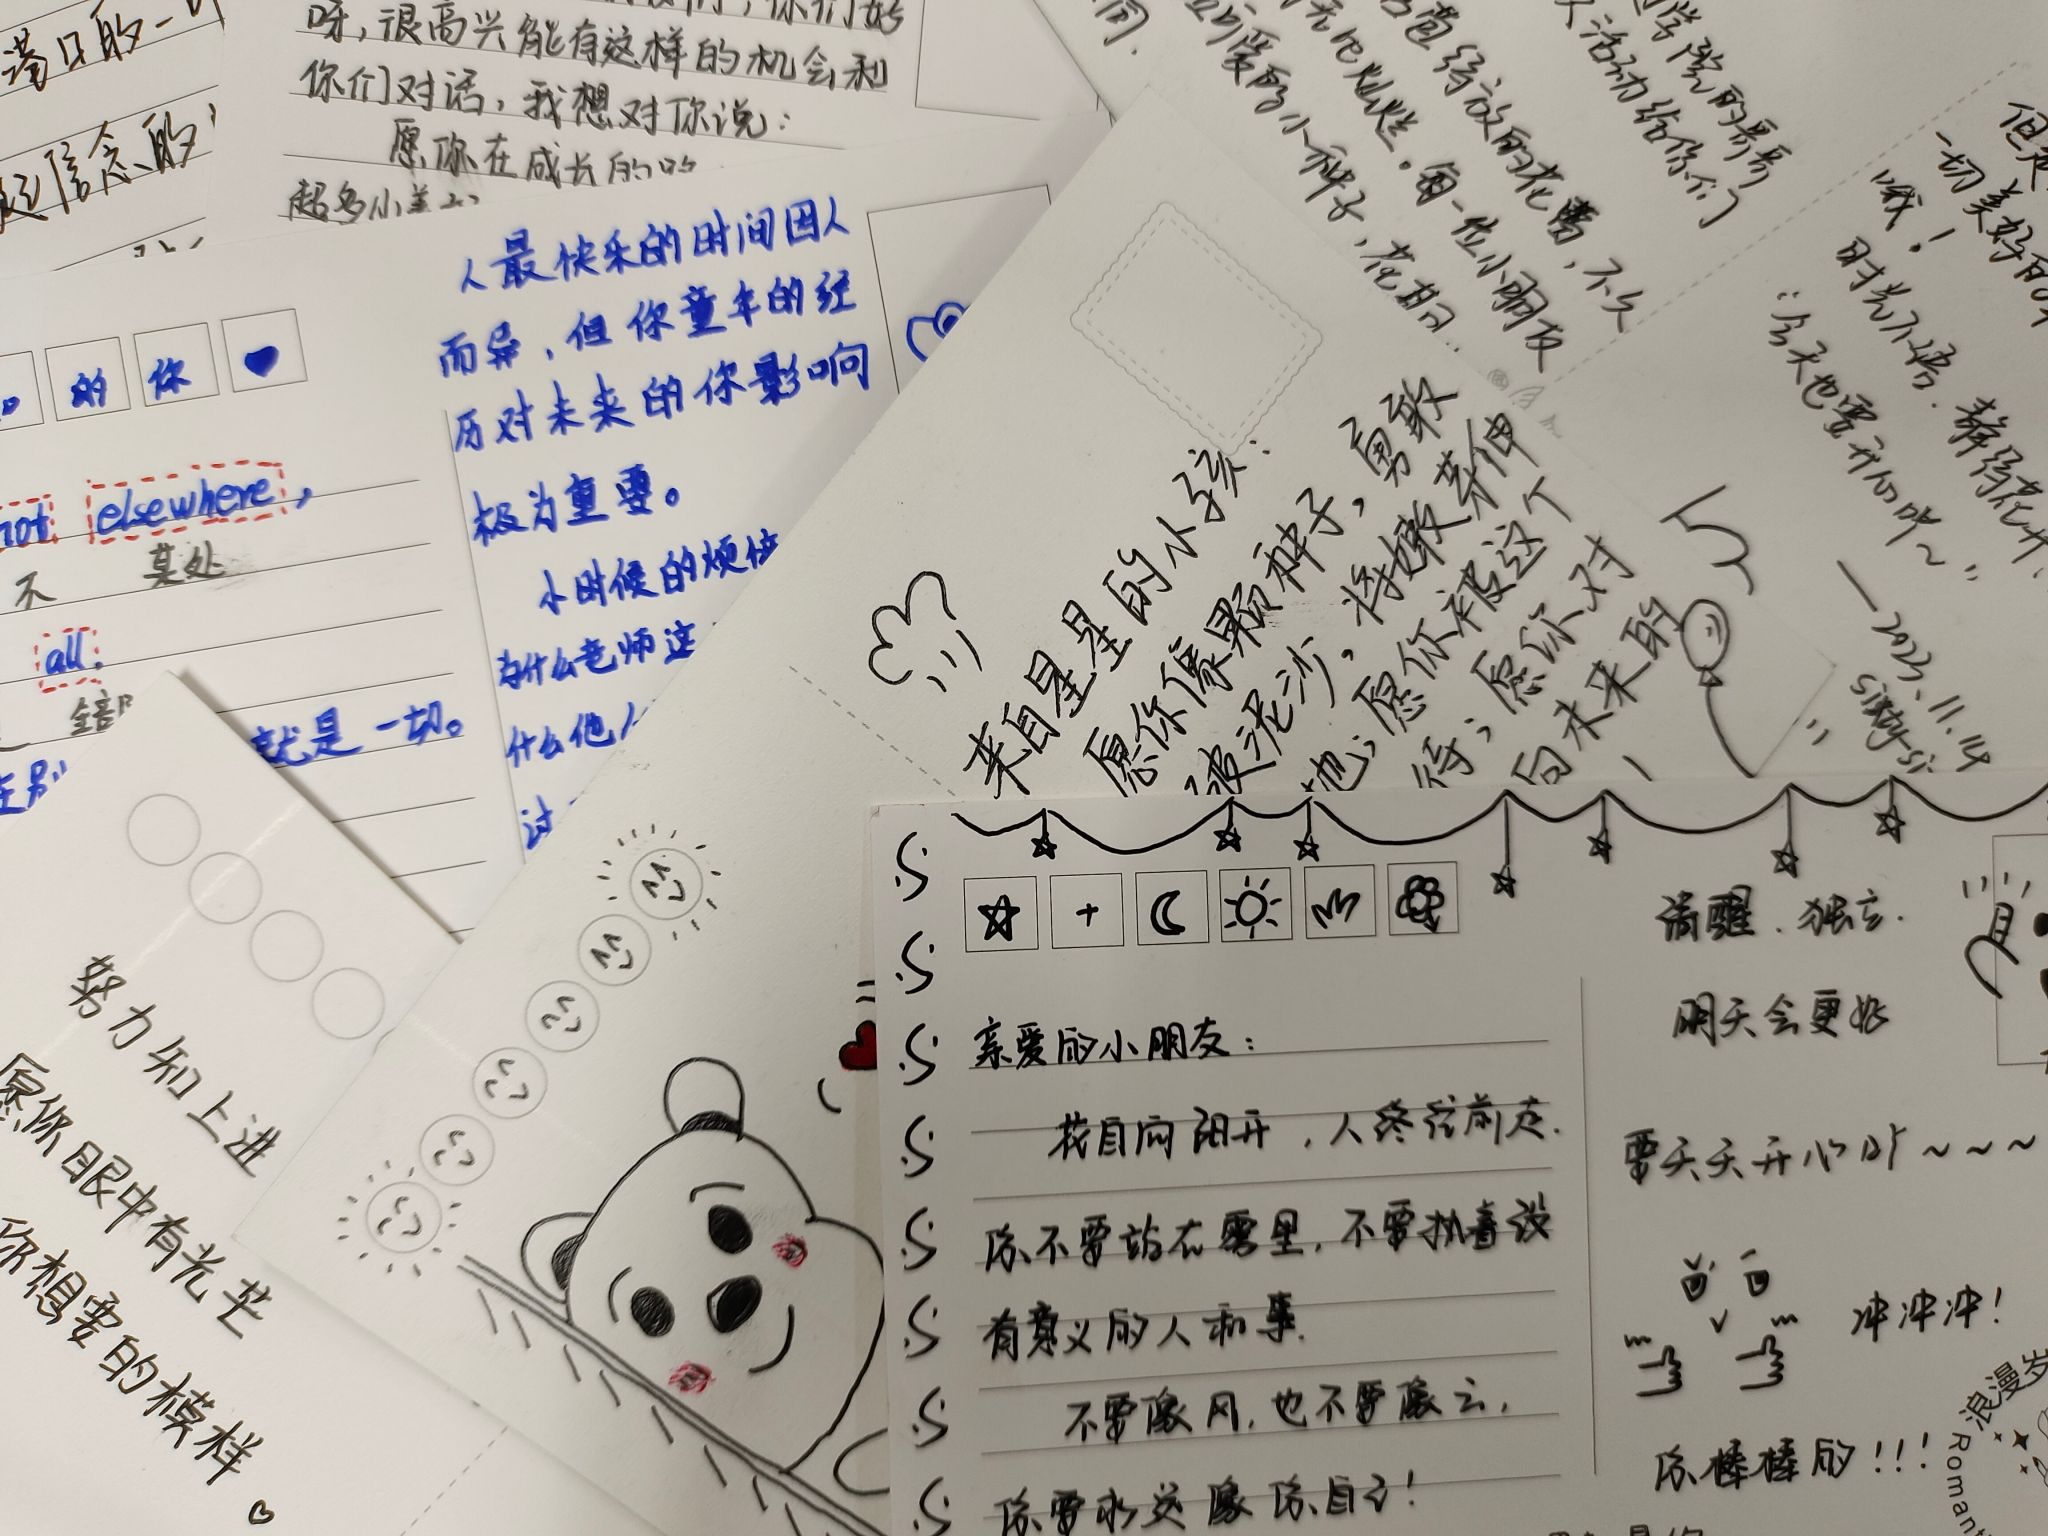 港口的一
信念的
呀，很高兴能有这样的机会和
你们对话，我想对你说：
愿你在成长的路
超多小美
人最快乐的时间因人
而异，但你童年的经
历对未来的你影响
极为重要。
小时候的烦恼
为什么老师这
什么他人
过
的你
not elsewhere,
不 某处
all.
全部
就是一切。
在别
苞绽放的花蕾，不久
灿烂。每一位小朋友
可爱的小种子，花期
同.
学院的哥哥
活动给你们
但是
一切美好的
哦！
时光不语，静待花开
：今天也要开心呀~
—2023.11.14
来自星星的小孩：
愿你像颗种子，勇敢
破泥沙，将嫩芽伸
地；愿你被这个
待；愿你对
向未来的
努力和上进
愿你眼中有光芒
你想要的模样
亲爱的小朋友：
花自向阳开，人终往前走.
你不要站在雾里，不要执着没
有意义的人和事.
不要像风，也不要像云，
你要永远像你自己！
清醒.独立.
明天会更好
要天天开心呀~~~
冲冲冲！
你棒棒的!!!
浪漫岁
Romant